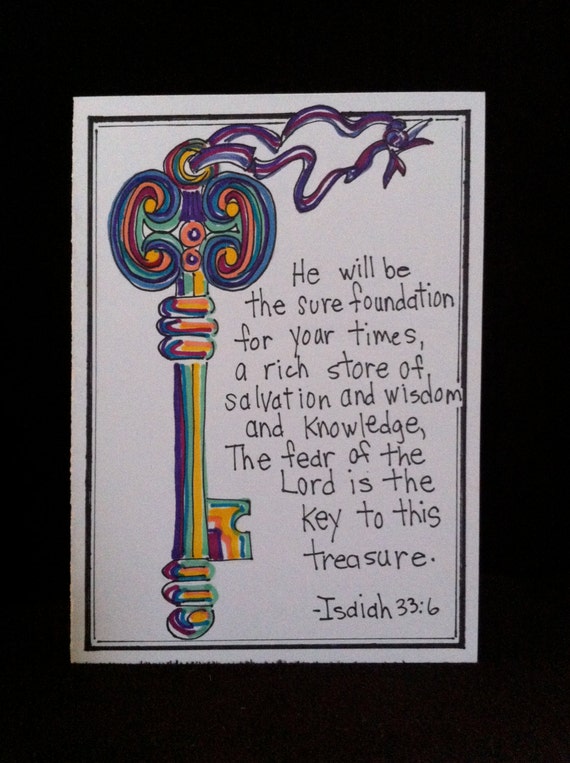 He will be
the sure foundation
for your times,
a rich store of
salvation and wisdom
and knowledge,
The fear of the
Lord is the
key to this
treasure.
-Isaiah 33:6